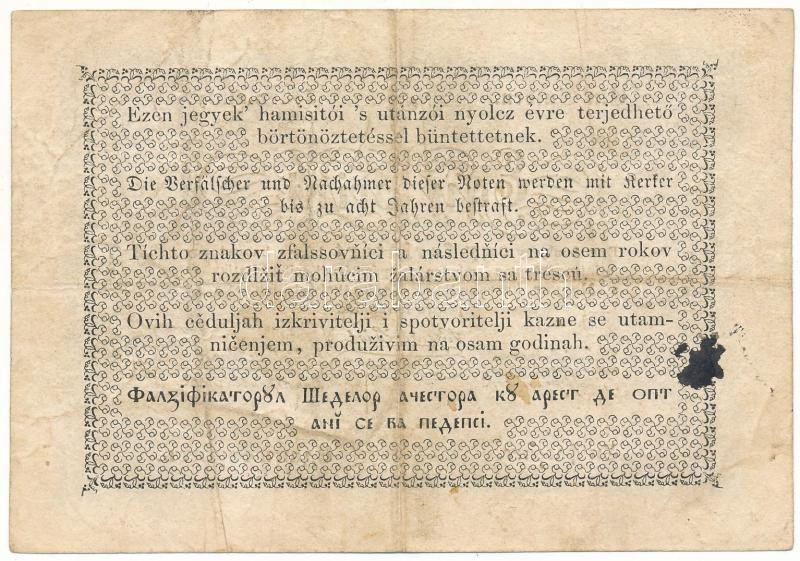 Ezen jegyek' hamisitói 's utánzói nyolcz évre terjedhető
börtönöztetéssel büntettetnek.
Die Verfälscher und Nachahmer dieser Noten werden mit Kerker
bis zu acht Jahren bestraft.
Tíchto znakov zfalssovňíci i následňíci na osem rokov
rozdlžiť mohúcim žalárstvom sa trescú.
Ovih cěduljah izkrivitelji i spotvoritelji kazne se utam-
ničenjem, produživim na osam godinah.
Фалꙃіфікаторꙋл Шеделор ачестора кꙋ арест де опт
анї се ва педепсі.
darabanth